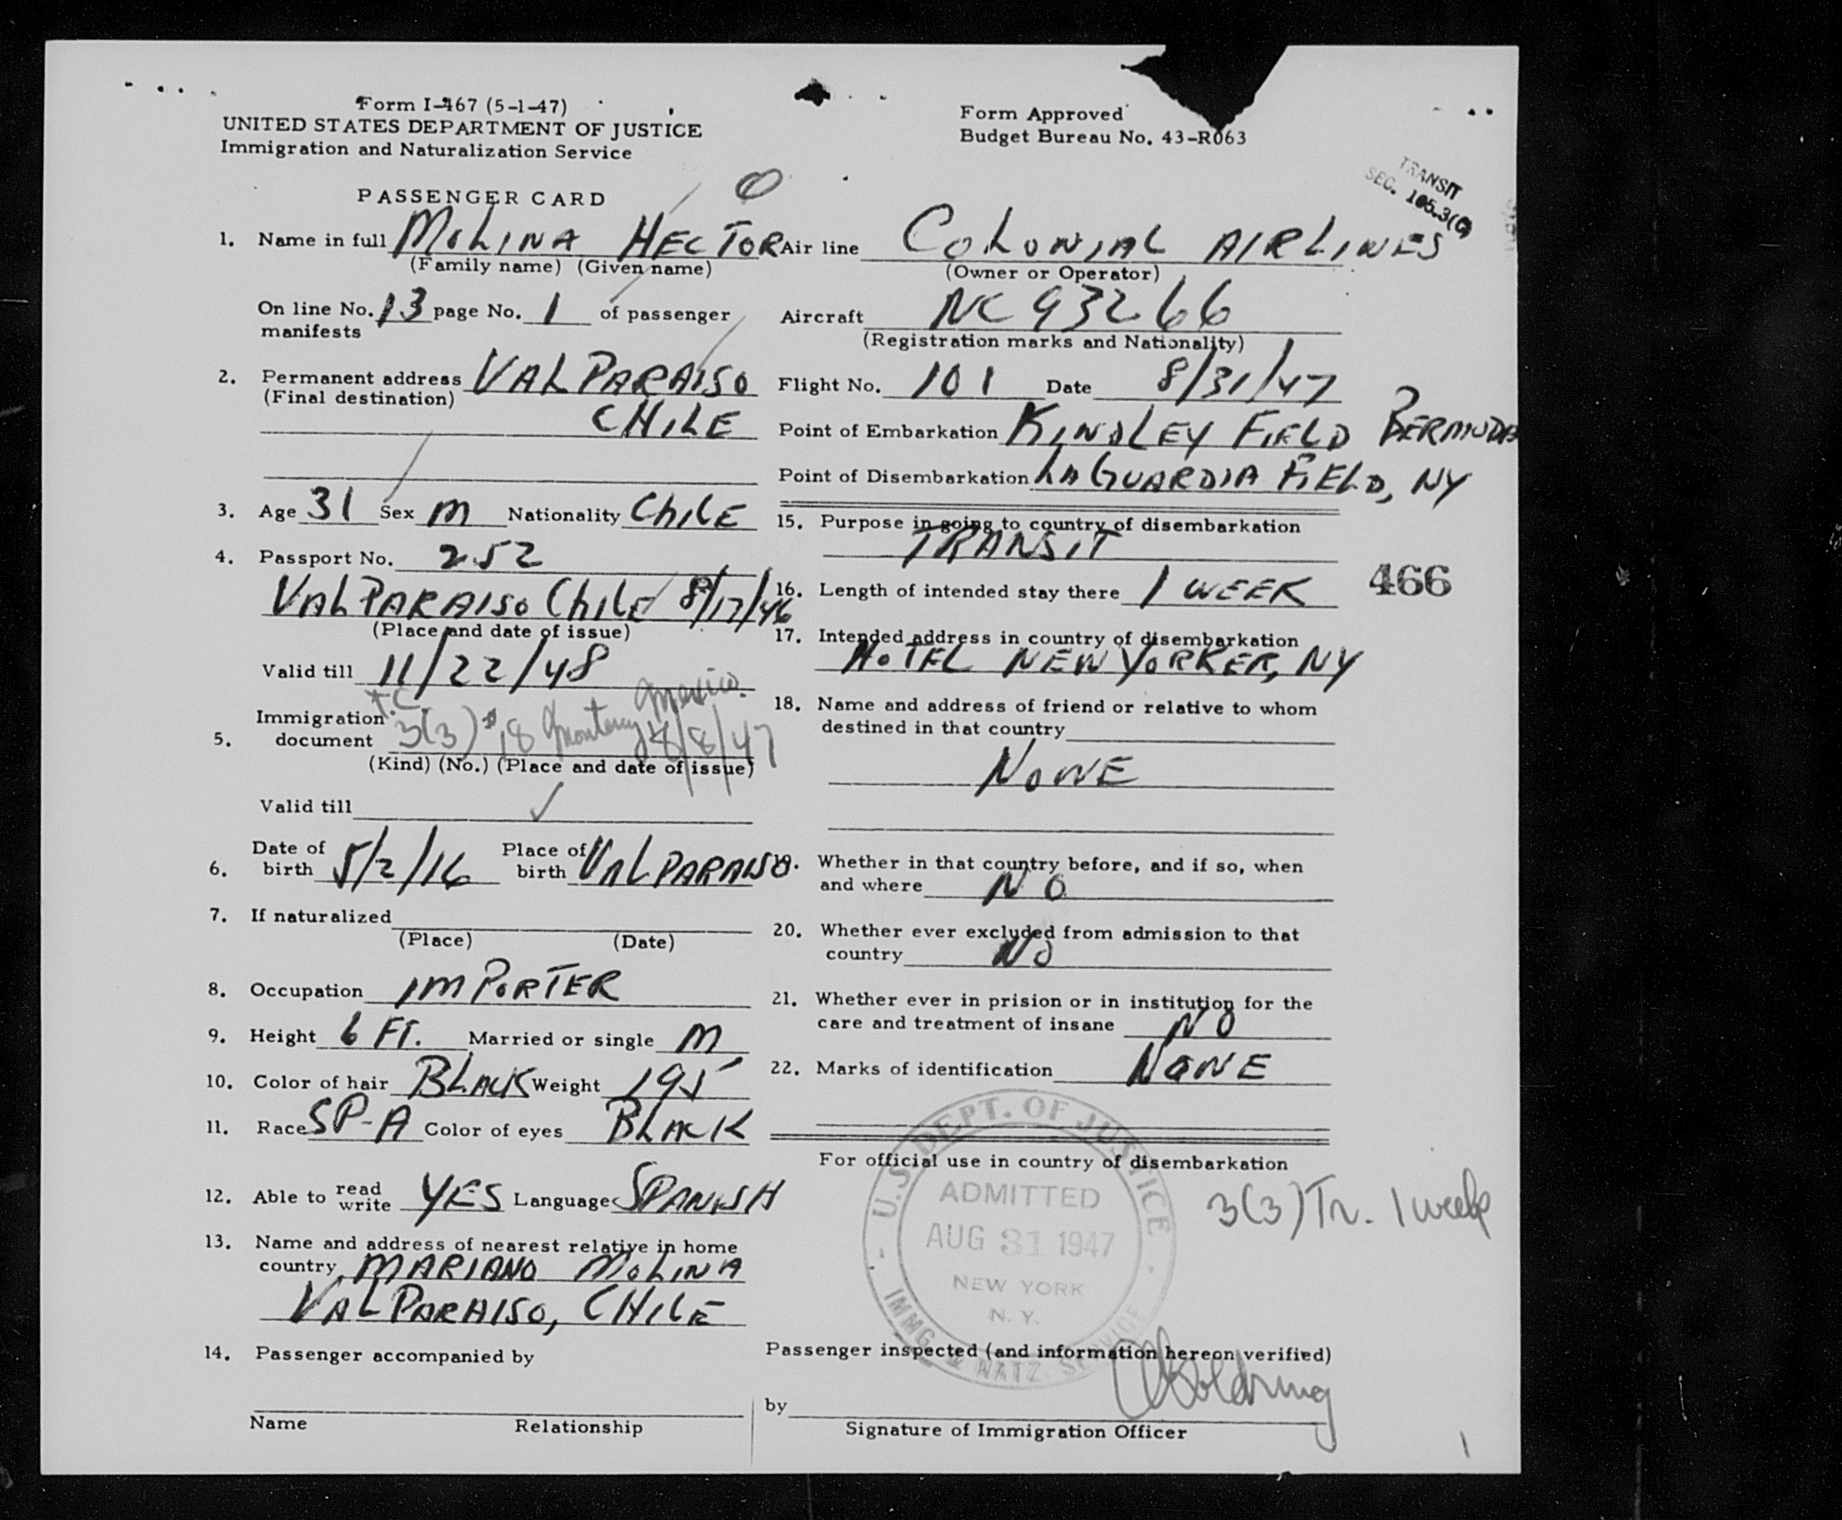 Form I-467 (5-1-47)
UNITED STATES DEPARTMENT OF JUSTICE
Immigration and Naturalization Service
Form Approved
Budget Bureau No. 43-R063
TRANSIT
SEC. 105.3(c)
PASSENGER CARD
1. Name in full MOLINA HECTOR
(Family name) (Given name)
On line No. 13 page No. 1 of passenger
manifests
2. Permanent address VALPARAISO
(Final destination)
CHILE
3. Age 31 Sex M Nationality CHILE
4. Passport No. 252
VALPARAISO CHILE 8/17/46
(Place and date of issue)
Valid till 11/22/48
5. Immigration document T.C. 3(3) #18 Monterrey Mexico. 8/8/47
(Kind) (No.) (Place and date of issue)
Valid till
6. Date of birth 5/2/16 Place of birth VALPARAISO
7. If naturalized
(Place) (Date)
8. Occupation IMPORTER
9. Height 6 FT. Married or single M
10. Color of hair BLACK Weight 195
11. Race SP-A Color of eyes BLACK
12. Able to read write YES Language SPANISH
13. Name and address of nearest relative in home
country MARIANO MOLINA
VALPARAISO, CHILE
14. Passenger accompanied by
Name Relationship
Air line COLONIAL AIRLINES
(Owner or Operator)
Aircraft NC 93266
(Registration marks and Nationality)
Flight No. 101 Date 8/31/47
Point of Embarkation KINDLEY FIELD BERMUDA
Point of Disembarkation LA GUARDIA FIELD, NY
15. Purpose in going to country of disembarkation
TRANSIT
16. Length of intended stay there 1 WEEK
466
17. Intended address in country of disembarkation
HOTEL NEW YORKER, NY
18. Name and address of friend or relative to whom
destined in that country
NONE
19. Whether in that country before, and if so, when
and where NO
20. Whether ever excluded from admission to that
country NO
21. Whether ever in prision or in institution for the
care and treatment of insane NO
22. Marks of identification NONE
For official use in country of disembarkation
3(3) Tr. 1 week
U.S. DEPT. OF JUSTICE
ADMITTED
AUG 31 1947
NEW YORK
N. Y.
IMMG. & NATZ. SERVICE
Passenger inspected (and information hereon verified)
by
Signature of Immigration Officer